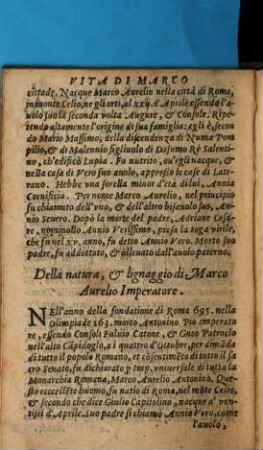 VITA DI MARCO
cittade. Nacque Marco Aurelio nella città di Roma,
in monte Celio, ne gli orti, al xxij. d'Aprile essendo l'a-
uolo suo la seconda volta Augure, & Console. Ripe-
tendo altamente l'origine di sua famiglia: egli è, secon
do Mario Massimo, della discendenza di Numa Pom
pilio, & di Malennio figliuolo di Dasumo Rè Salenti-
no, ch'edificò Lupia. Fu nutrito, ou'egli nacque, &
nella casa di Vero suo auolo, appresso le case di Late-
rano. Hebbe vna sorella minor d'età di lui, Annia
Cornificia. Per nome Marco Aurelio, nel principio
fu chiamato dell'vno, & dell'altro bisauolo suo, An-
nio Seuero. Dopò la morte del padre, Adriano Cesa-
re, nominollo Annio Verissimo, presa la toga virile,
che fu nel xv. anno, fu detto Annio Vero. Morto suo
padre, fu addottato, & alleuato dall'auolo paterno.
Della natura, & lignaggio di Marco
Aurelio Imperatore.
NEll'anno della fondatione di Roma 695. nella
Olimpiade 163. morto Antonino Pio Imperato
re, essendo Consoli Fuluio Catone, & Gneo Patroclo
nell'alto Capidoglo, ai quattro d'Ottobre, per dimāda
di tutto il popolo Romano, et cōsentimēto di tutto il sa
cro Senato, fu dichiarato p Imp. vniuersale di tutta la
Monarchia Romana, Marco Aurelio Antonino. Que-
sto eccellēte huomo, fu natio di Roma, nel mōte Celio,
& secondo che dice Giulio Capitolino, nacque a' ven-
tisei d'Aprile. Suo padre si chiamò Annio Vero, come
l'auolo,